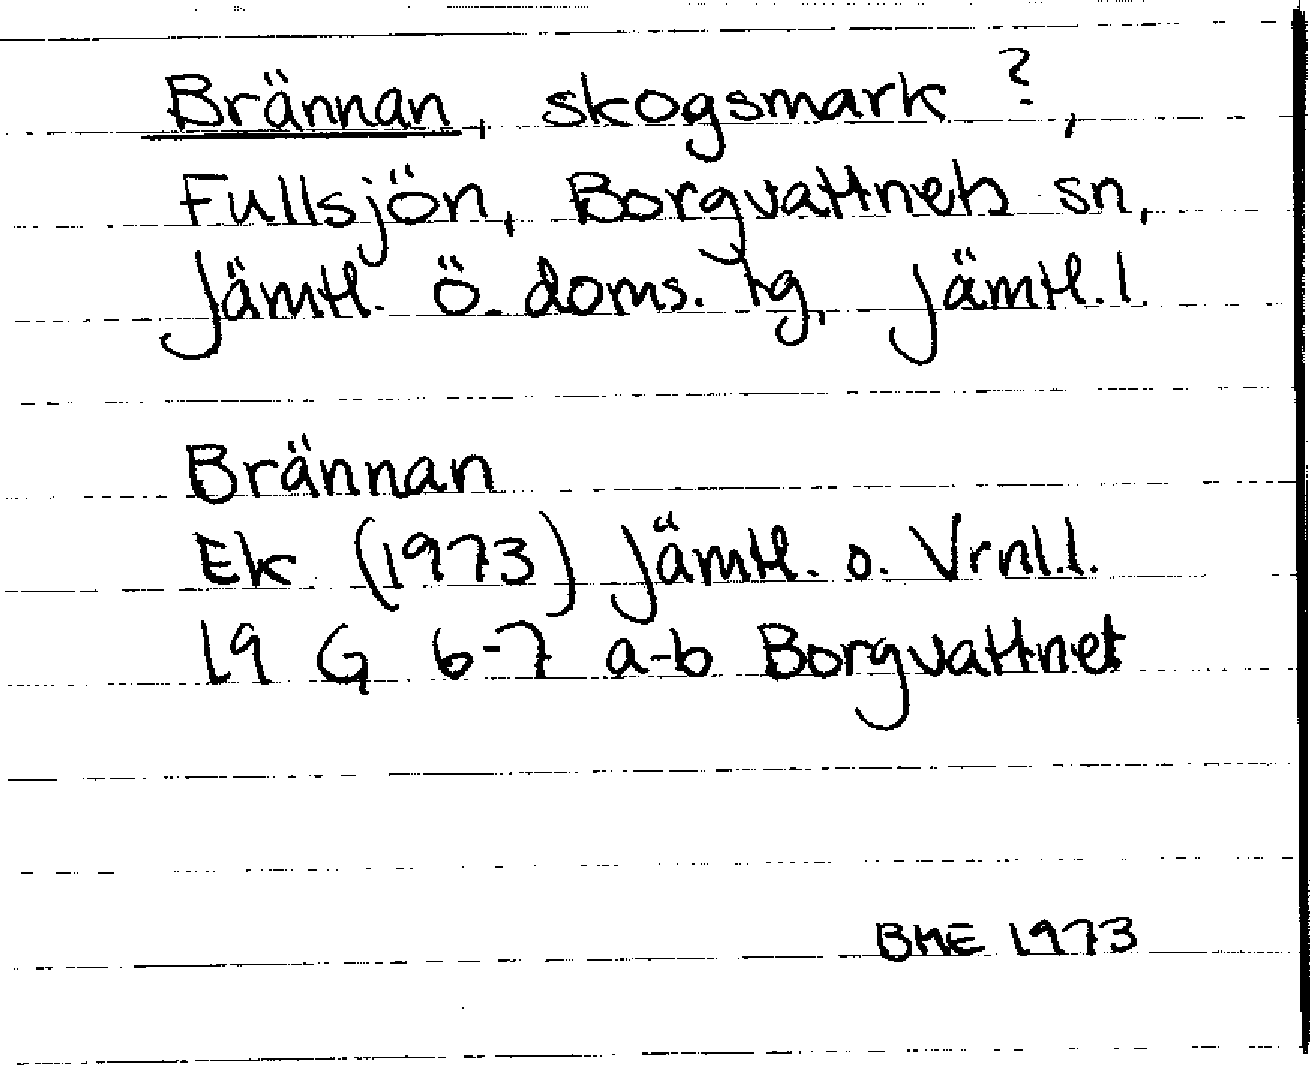 Brännan, skogsmark ?,
Fullsjön, Borgvattnets sn,
Jämtl. ö. doms. tg, Jämtl. l
Brännan
Ek (1973) Jämtl. o. Vrnl.l.
19 G 6-7 a-b Borgvattnet
BME 1973